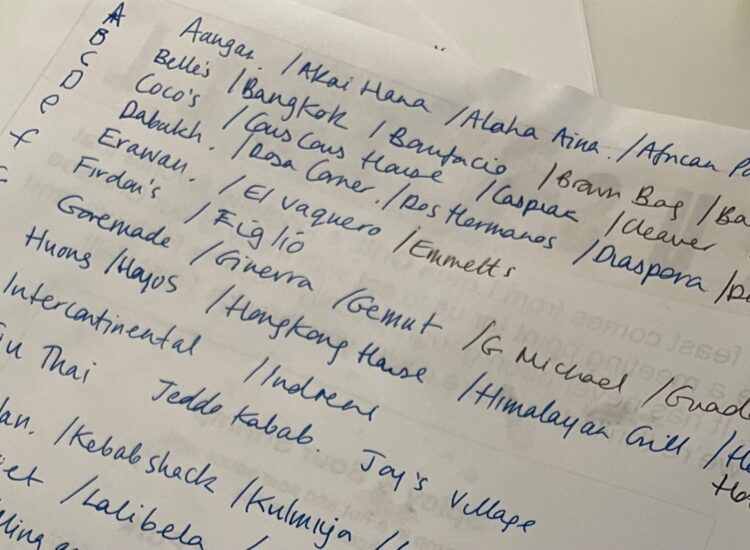 A Aangan. /Akai Hana /Aloha Aina. /African
B Belle's /Bangkok /Bonifacio /Brown Bag
C Coco's /Cous Cous House /Caspian /Cleaver
D Dabakh. /Dosa Corner. /Dos Hermanos /Diaspora
e Erawan. /El Vaquero /Emmetts
f Firdous's /Figlio
Goremade /Ginevra /Gemut /G Michael
Huong /Hoyos /Hongkong House /Himalayan Grill
Intercontinental /Indreni
Thai Jeddo Kabab. Joy's Village
/Kebabshack /Kulmiye
/Lalibela